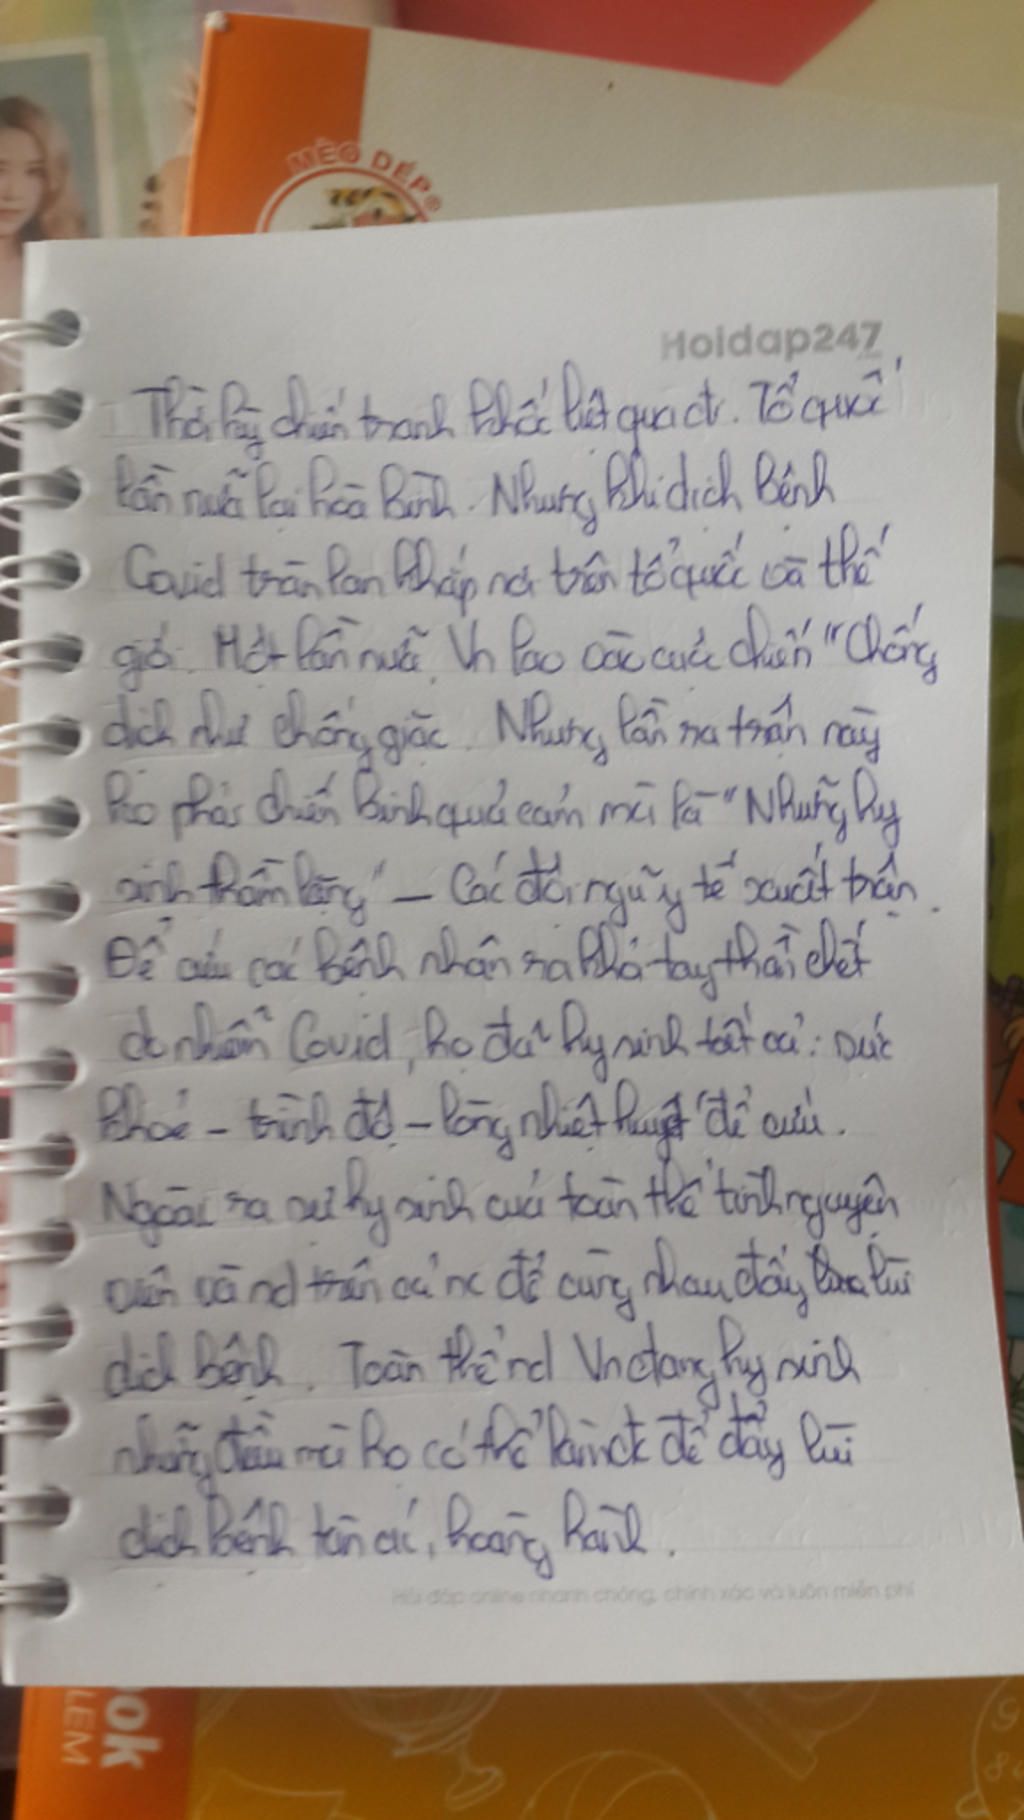 MÈO DÉP®
Hoidap247
Thời kỳ chiến tranh khốc liệt qua đi. Tổ quốc
lần nữa lại hoà bình. Nhưng khi dịch bệnh
Covid tràn lan khắp nơi trên tổ quốc và thế
giới. Một lần nữa, Vn lao vào cuộc chiến "Chống
dịch như chống giặc. Nhưng lần ra trận này
ko phải chiến binh quả cảm mà là "Những hy
sinh thầm lặng" – Các đội ngũ y tế xuất trận.
Để cứu các bệnh nhân ra khỏi tay thần chết
do nhiễm Covid, họ đã hy sinh tất cả: sức
khoẻ – trình độ – lòng nhiệt huyết để cứu.
Ngoài ra sự hy sinh của toàn thể tình nguyện
viên và nd trên cả nc để cùng nhau đẩy lùi
dịch bệnh. Toàn thể nd Vn đang hy sinh
những điều mà họ có thể làm đc để đẩy lùi
dịch bệnh tàn ác, hoàng hành.
Hỏi đáp online nhanh chóng, chính xác và luôn miễn phí
ook
LEM